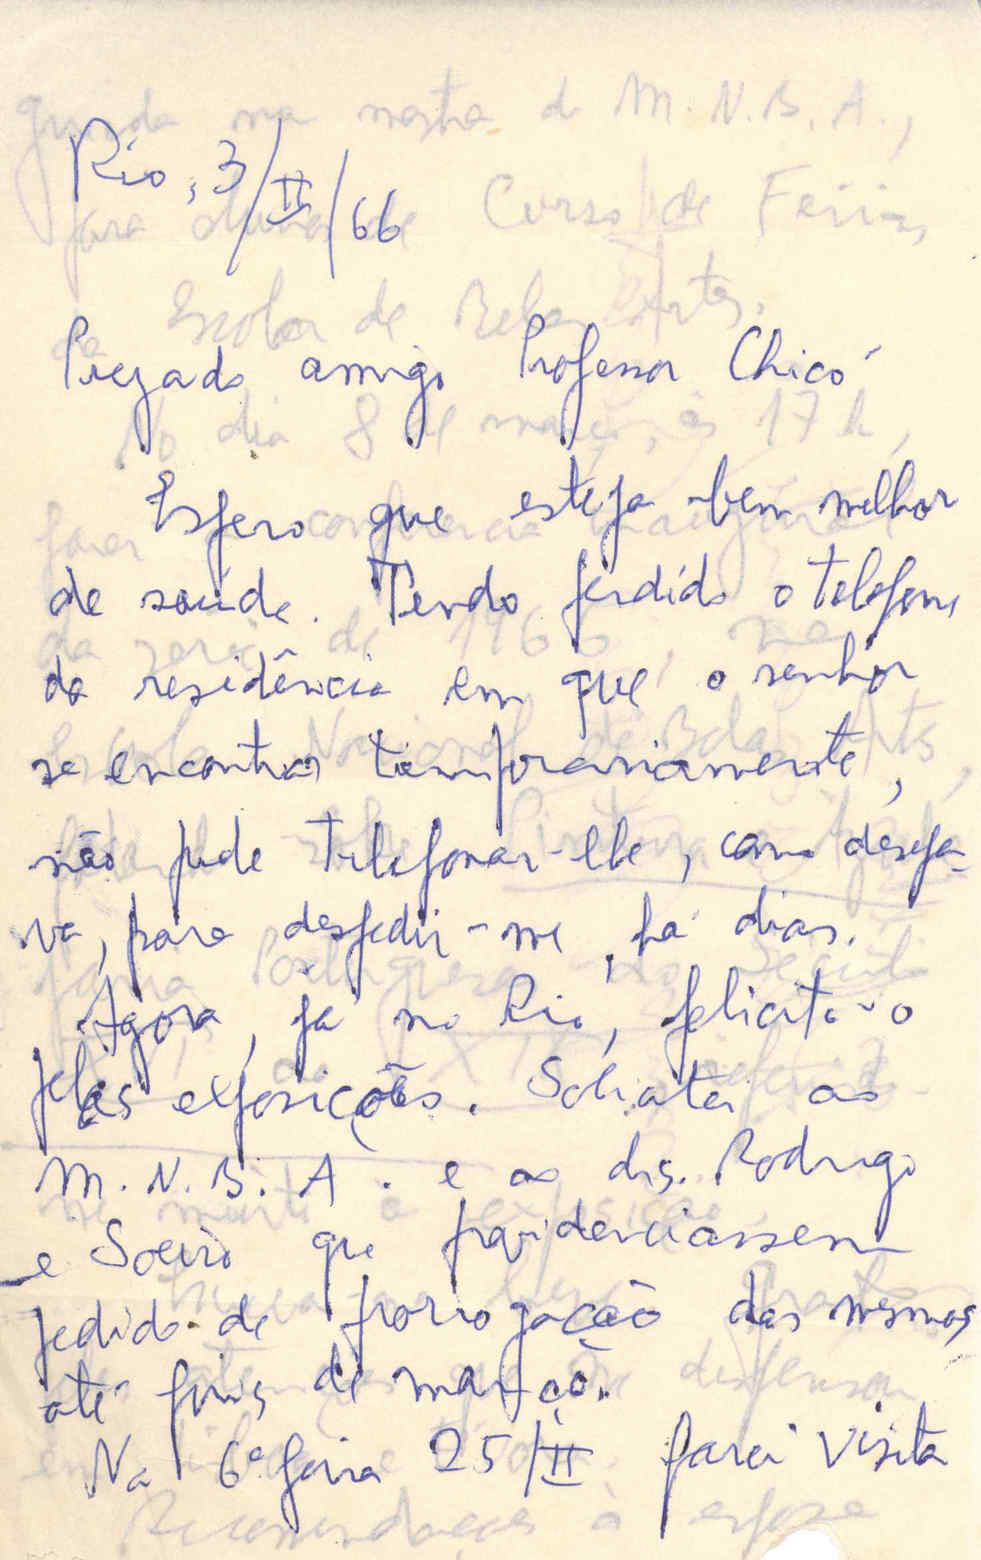 Rio, 3/II/66
Prezado amigo Professor Chicó
Espero que esteja bem melhor
de saúde. Tendo perdido o telefone
da residência em que o senhor
se encontra temporariamente,
não pude telefonar-lhe, como deseja-
va, para despedir-me, há dias.
Agora, já no Rio, felicito-o
pelas exposições. Solicitei ao
M.N.B.A. e ao drs. Rodrigo
e Soeiro que providenciassem
pedido de prorrogação das mesmas
até fins de março.
Na 6ª feira 25/II farei visita